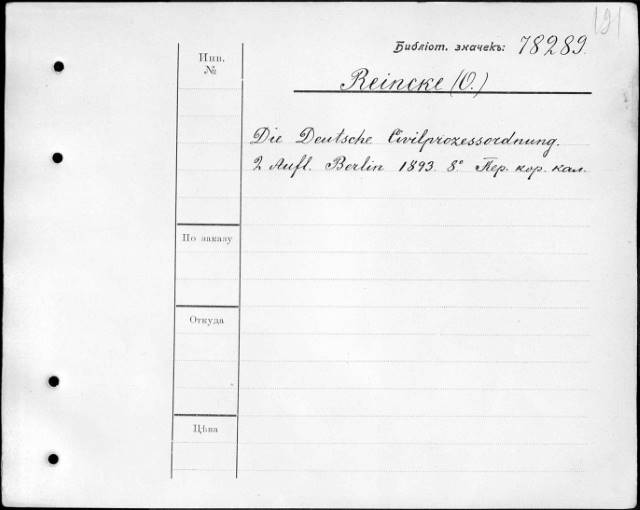 191
Библіот. значекъ: 78289.
Инв.
№
Reincke (O.)
Die Deutsche Civilprozessordnung.
2 Aufl. Berlin 1893. 8° Пер. кор. кал.
По заказу
Откуда
Цѣна